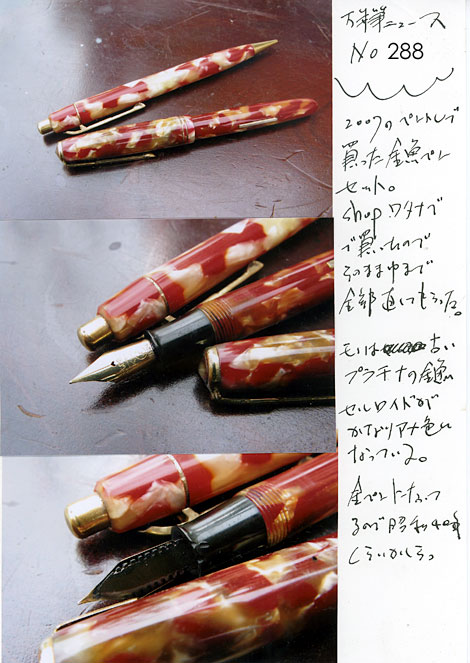 万年筆ニュース
No 288
2007のペントレで
買った金魚ペン
セット。
shop ワタナベ
で買ったので
そのままゆまで
全部直してもらった。
モノは 古い
プラチナの金魚
セルロイドが
かなりアメ色に
なっている。
金ペン
るので昭和
くらいかしら。